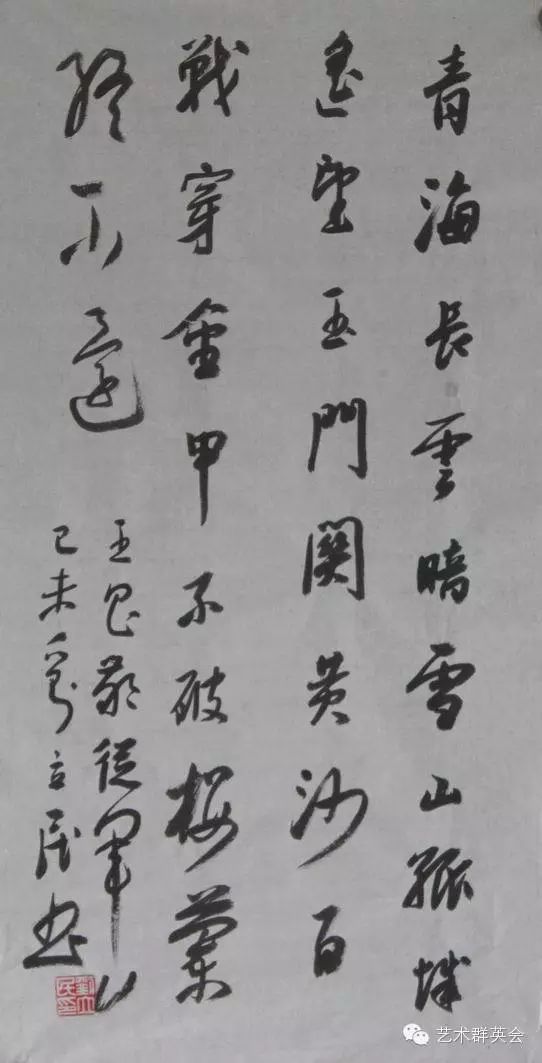 青海長雲暗雪山孤城
遙望玉門關黃沙百
戰穿金甲不破樓蘭
終不還
王昌齡從軍行
己未劉立民書
艺术群英会